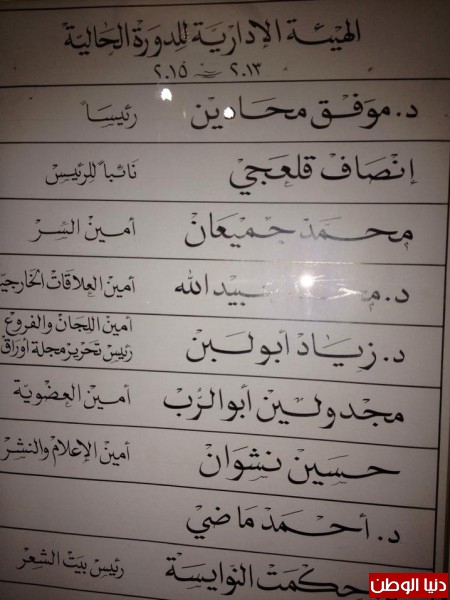 الهيئة الإدارية للدورة الحالية
٢٠١٣ - ٢٠١٥
د. موفق محادين رئيساً
إنصاف قلعجي نائباً للرئيس
محمد جميعان أمين السر
د. محمد عبيدالله أمين العلاقات الخارجية
د. زياد أبولبن أمين اللجان والفروع
رئيس تحرير مجلة أوراق
مجدولين أبوالرب أمين العضوية
حسين نشوان أمين الإعلام والنشر
د. أحمد ماضي
حكمت النوايسة رئيس بيت الشعر
دنيا الوطن